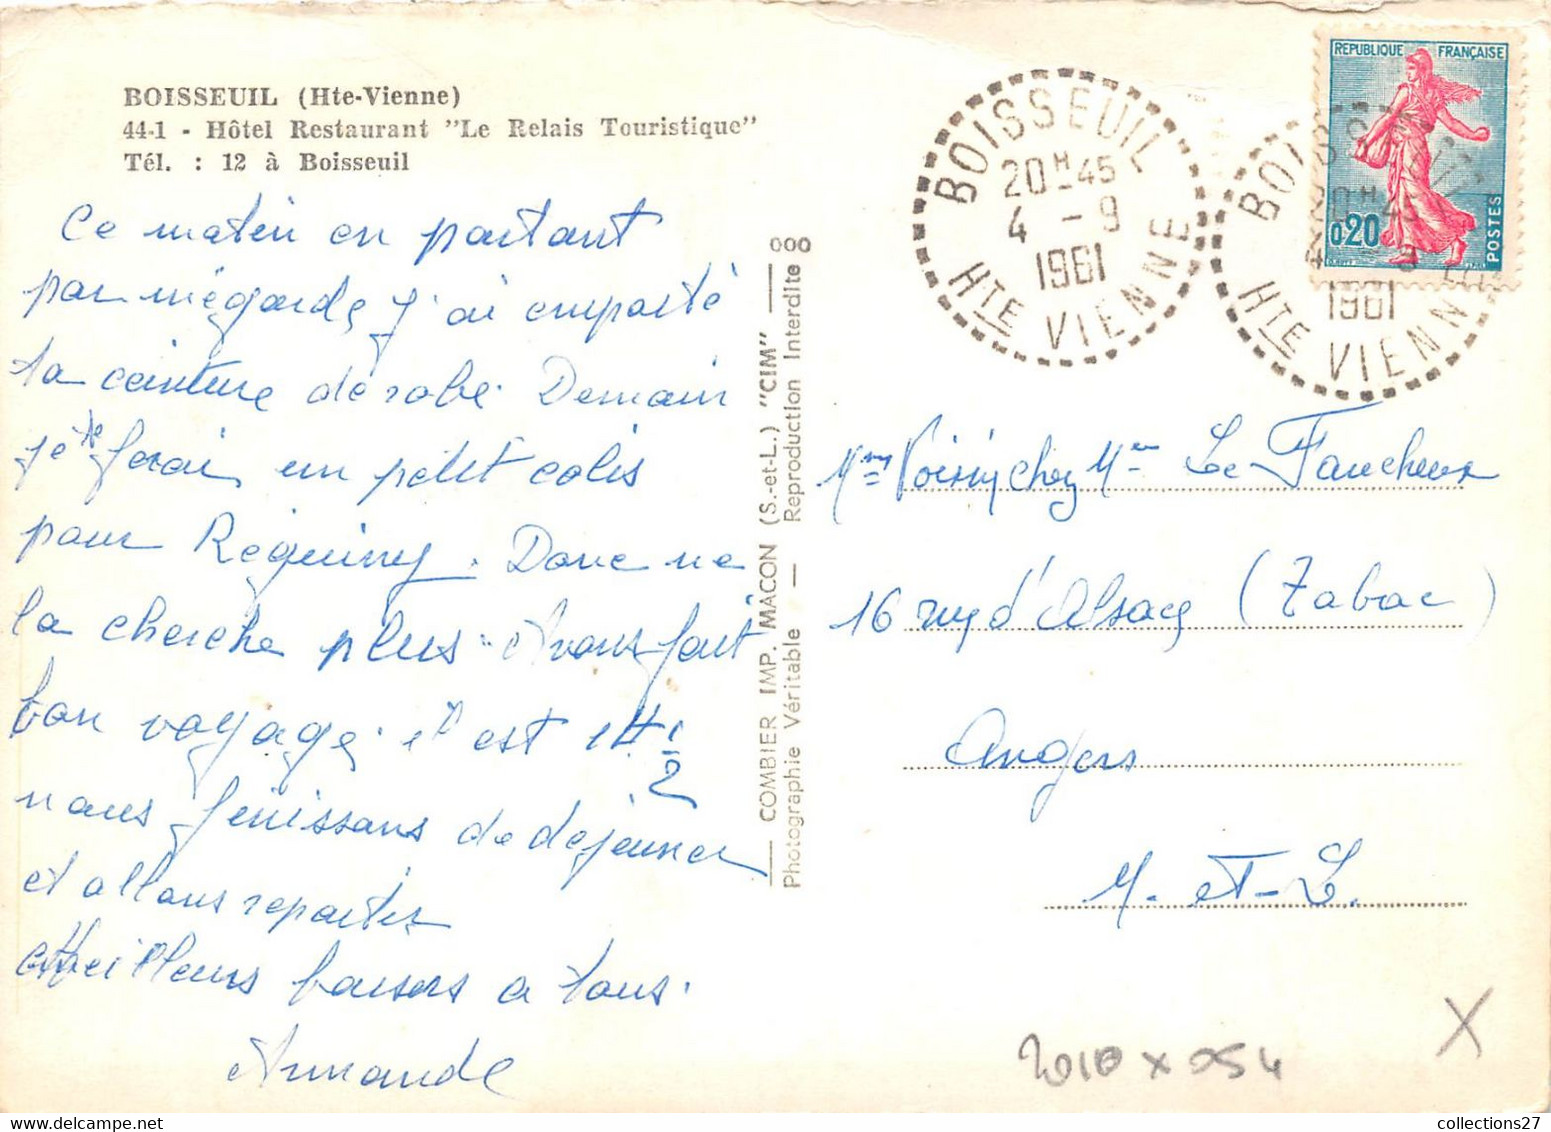 BOISSEUIL (Hte-Vienne)
44-1 - Hôtel Restaurant "Le Relais Touristique"
Tél. : 12 à Boisseuil
Ce matin en partant
par mégarde j'ai emporté
ta ceinture de robe. Demain
je te ferai un petit colis
pour Reguiny. Donc ne
la cherche plus. Avons fait
bon voyage. il est 1H 1/2
nous finissons de dejeuner
et allons repartir
Meilleurs baisers a tous.
Armande
000
COMBIER IMP. MACON (S.-et-L.) "CIM"
Photographie Véritable — Reproduction Interdite
BOISSEUIL
20H45
4 - 9
1961
HTE VIENNE
BOISSEUIL
20H45
4 - 9
1961
HTE VIENNE
REPUBLIQUE FRANÇAISE
0,20
POSTES
Mme Voisin chez Mme Le Faucheux
16 rue d'Alsace (Tabac)
Angers
M.-et-L.
2010 x 054
X
collections27